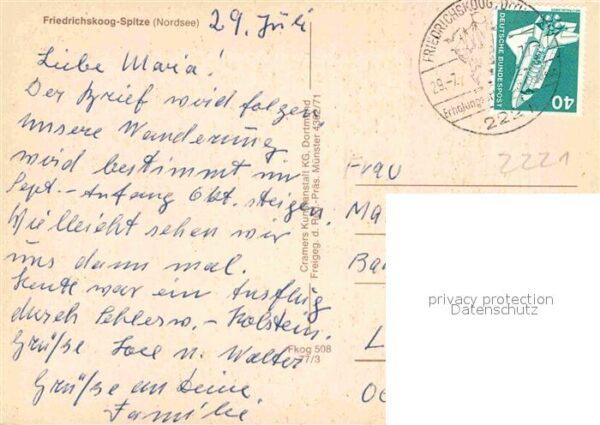 Friedrichskoog-Spitze (Nordsee)
29. Juli
Liebe Maria!
Der Brief wird folgen
unsere Wanderung
wird bestimmt im
Sept.-Anfang Okt. steigen.
Vielleicht sehen wir
uns dann mal.
Heute war ein Ausflug
durch Schlesw.-Holstein.
Grüße Lore u. Walter
Grüße an Deine
Familie
Cramers Kunstanstalt KG, Dortmund
Freigeg. d. Reg.-Präs. Münster 4392/71
Fkog 508
77/3
FRIEDRICHSKOOG
29.-7.
Erholungs
222
DEUTSCHE BUNDESPOST
40
2221
Frau
Ma
Ba
L
privacy protection
Datenschutz